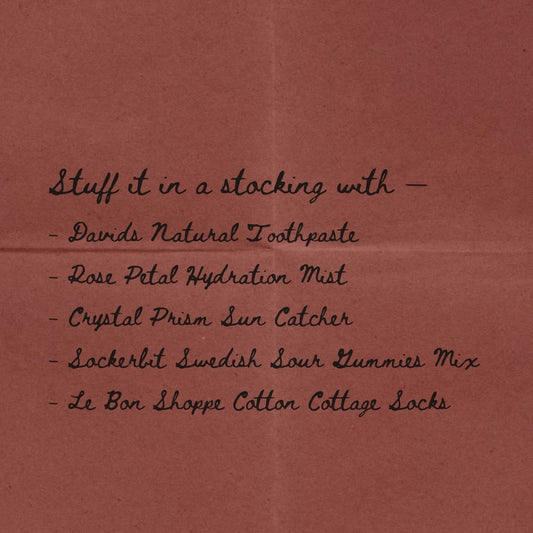 Stuff it in a stocking with —
- Davids Natural Toothpaste
- Rose Petal Hydration Mist
- Crystal Prism Sun Catcher
- Sockerbit Swedish Sour Gummies Mix
- Le Bon Shoppe Cotton Cottage Socks